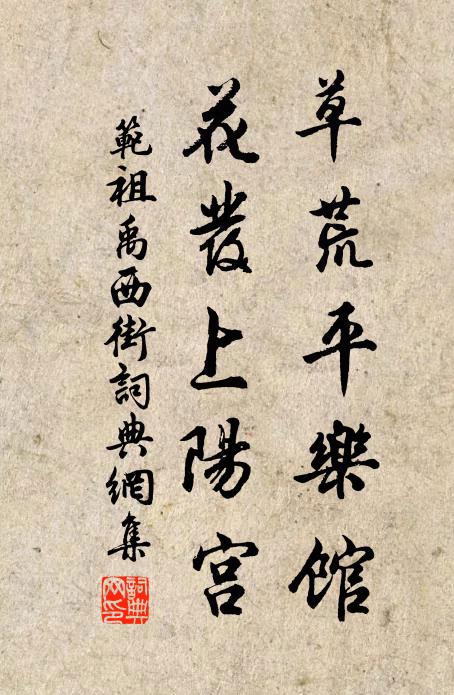 草荒平樂館
花發上陽宮
範祖禹西街詞典網集
詞典